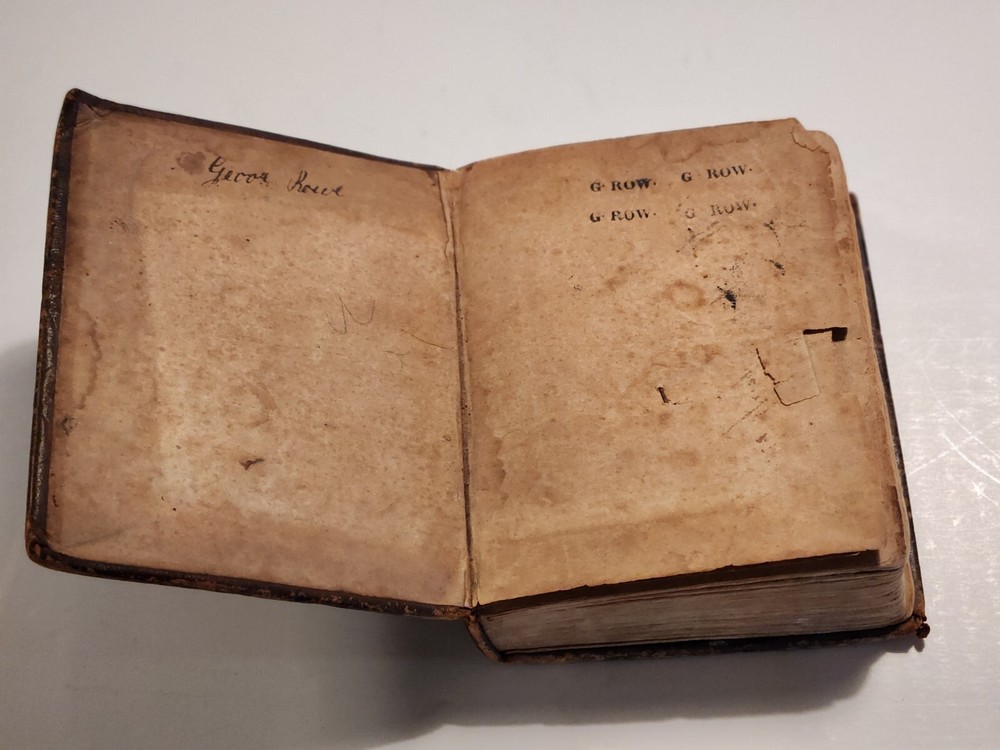 Geror Rowe
G· ROW. G ROW.
G· ROW. G ROW.